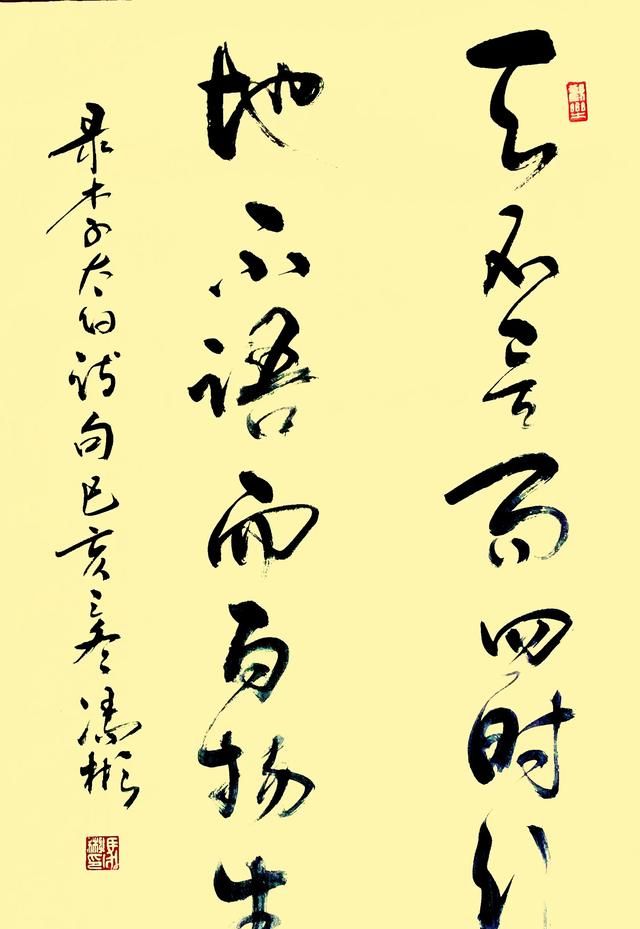 天不言而四时行
地不语而百物生
录李太白诗句己亥冬冯彬